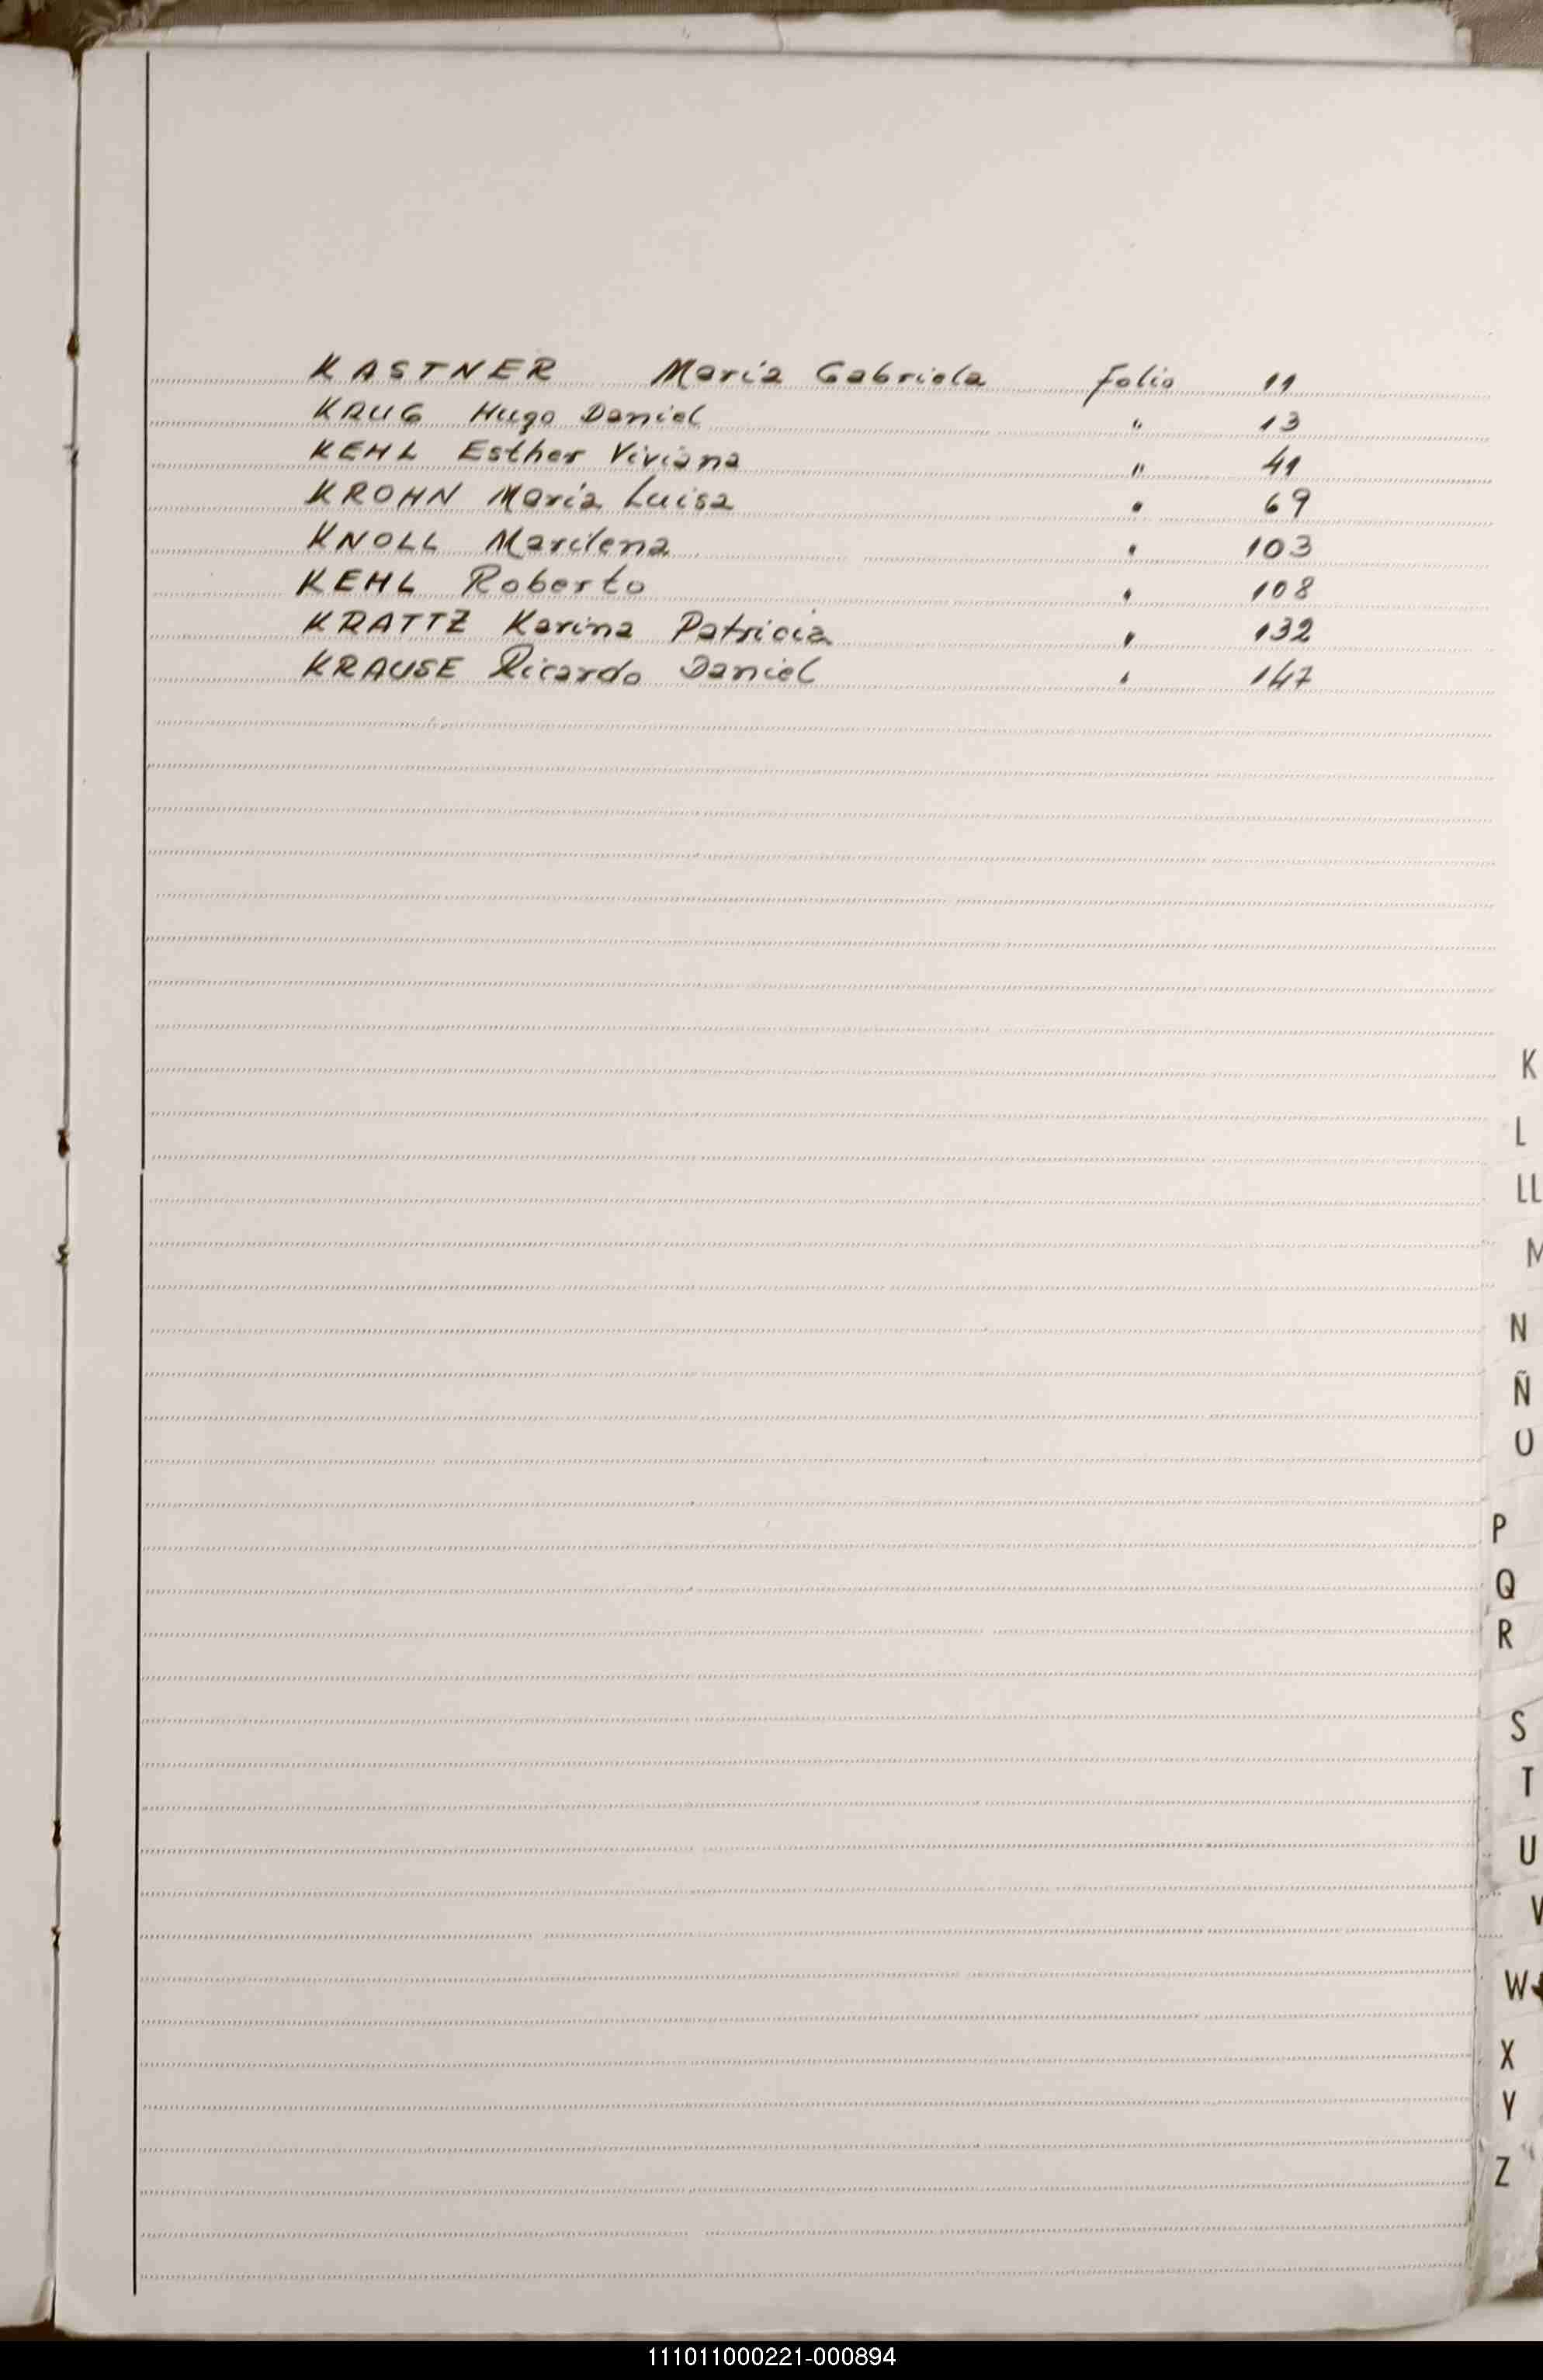 KASTNER María Gabriela folio 11
KRUG Hugo Daniel " 13
KEHL Esther Viviana " 41
KROHN María Luisa " 69
KNOLL Marilena " 103
KEHL Roberto " 108
KRATTZ Karina Patricia " 132
KRAUSE Ricardo Daniel " 147
K
L
LL
M
N
Ñ
O
P
Q
R
S
T
U
V
W
X
Y
Z
111011000221-000894